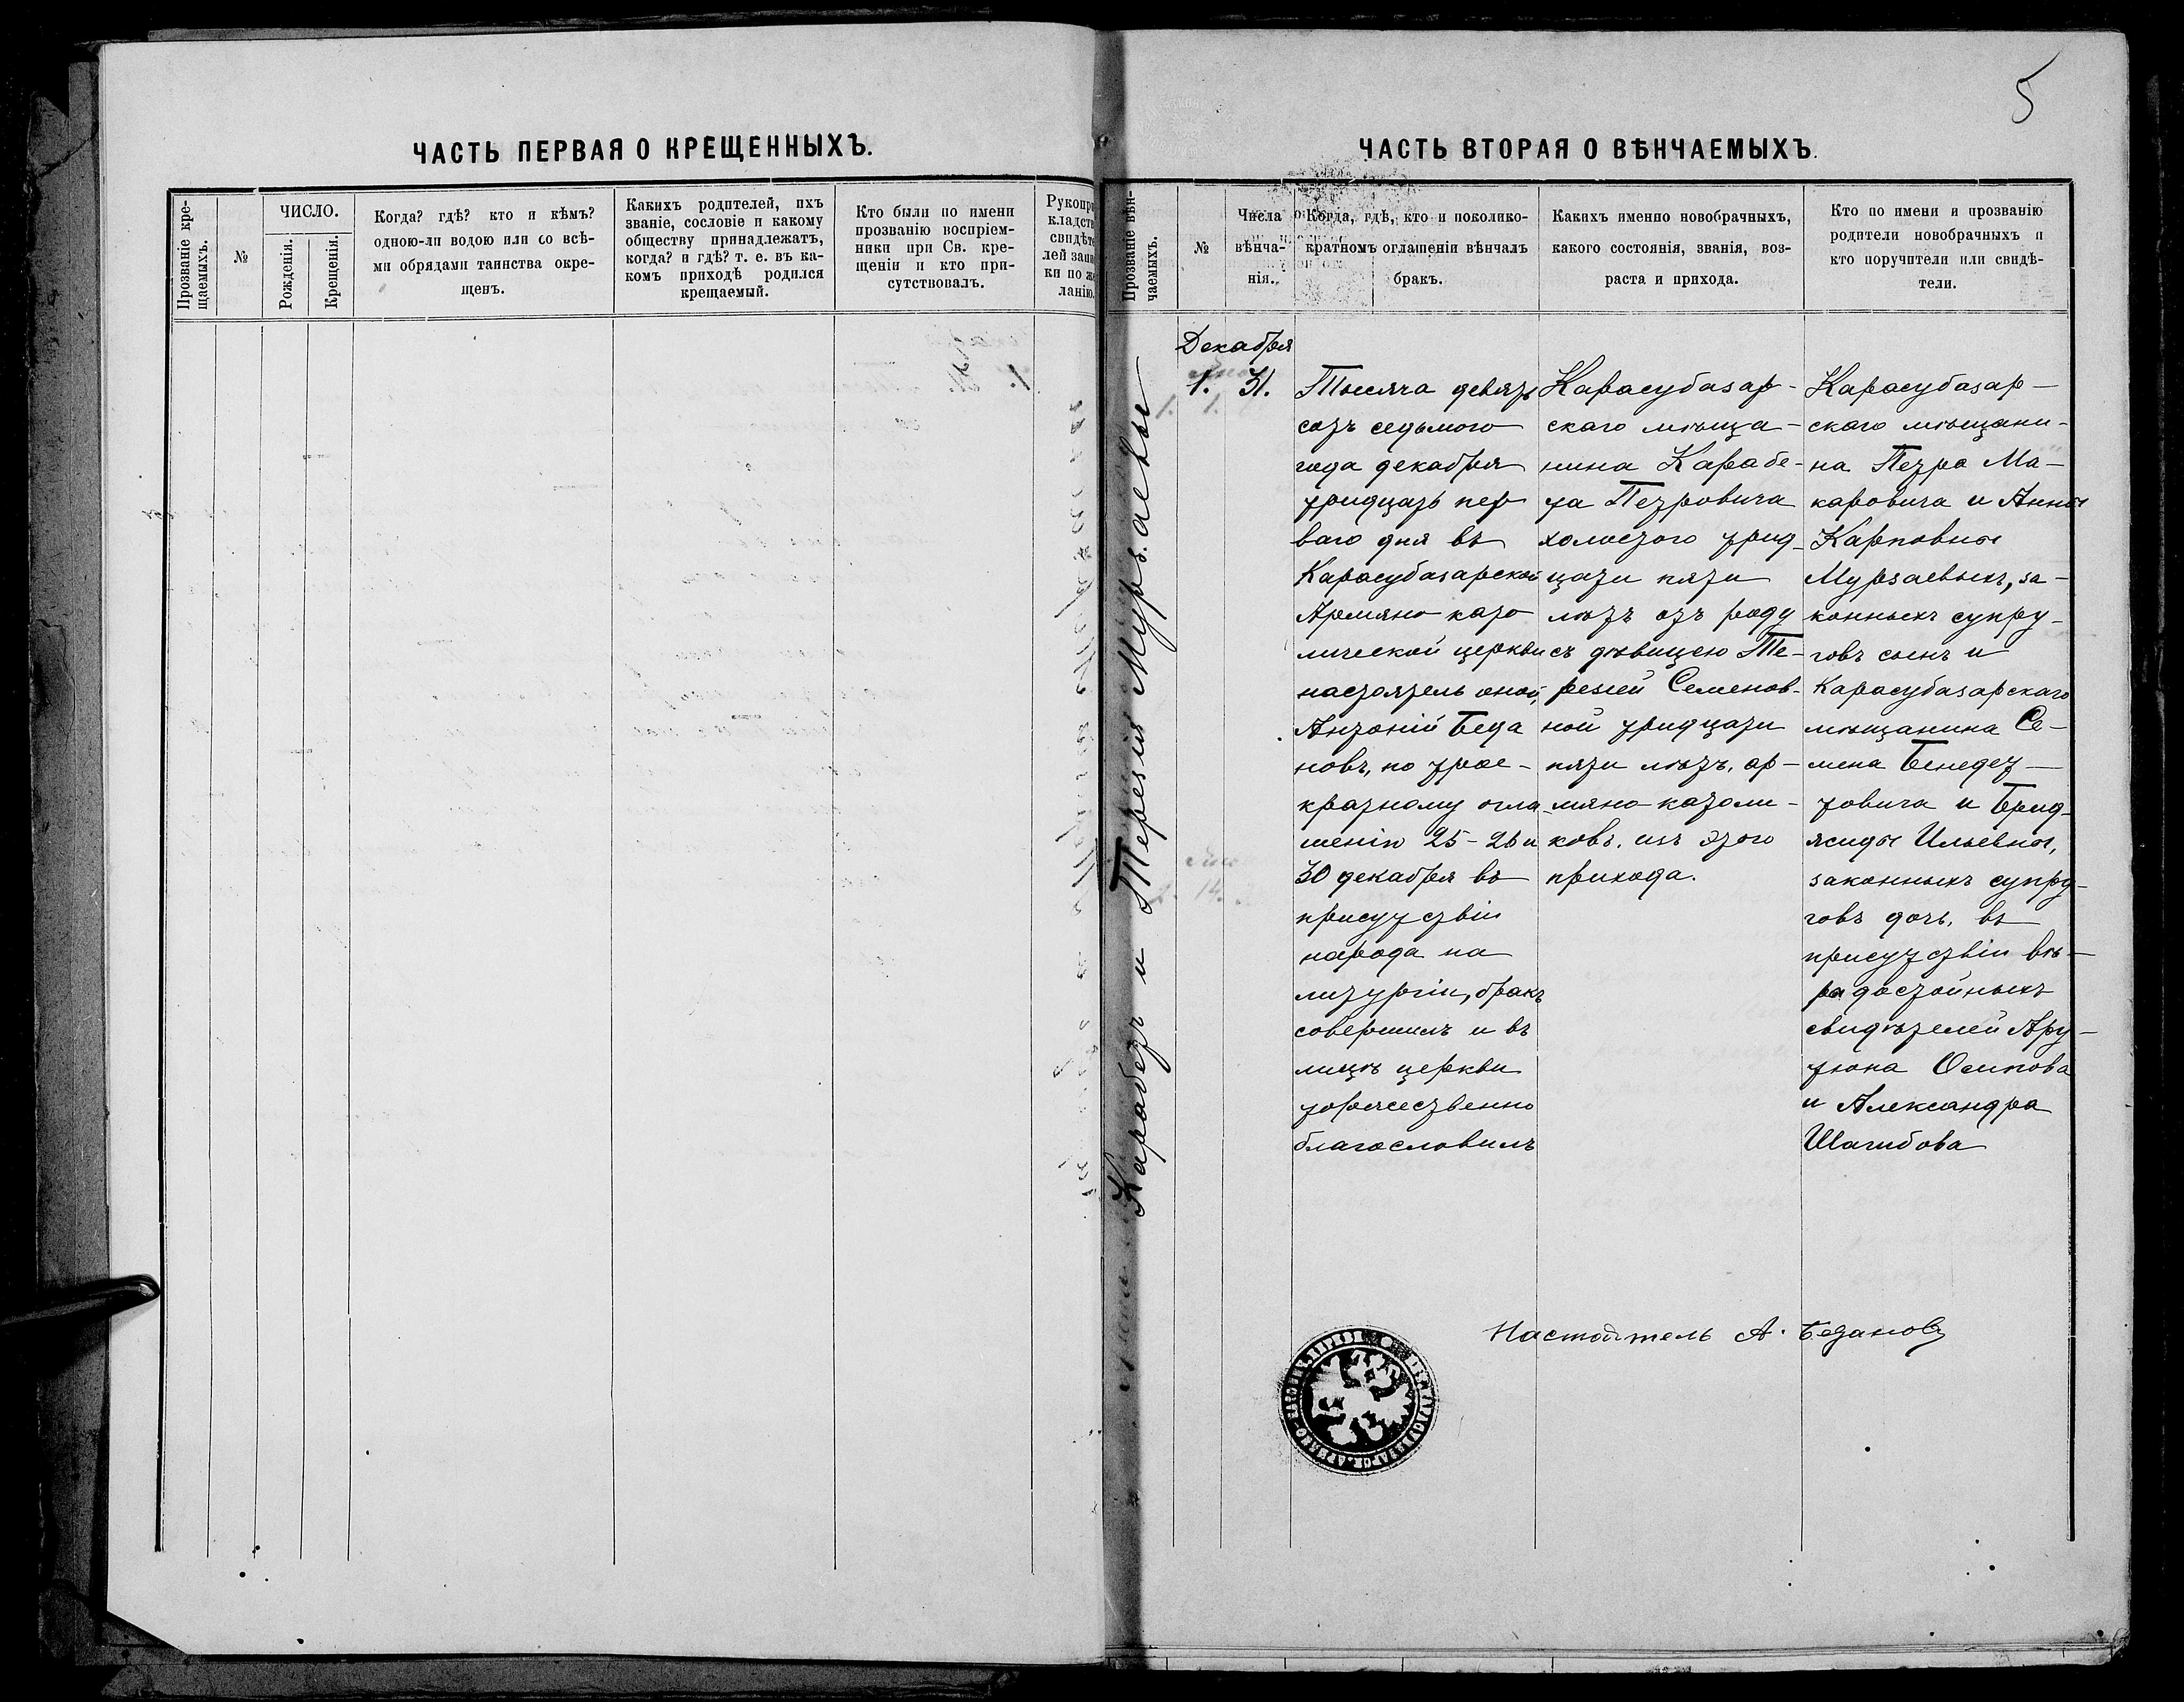 5
ЧАСТЬ ПЕРВАЯ О КРЕЩЕННЫХЪ.
Прозваніе кре-
щаемыхъ.
№
ЧИСЛО.
Рожденія.
Крещенія.
Когда? гдѣ? кто и кѣмъ?
одною-ли водою или со всѣ-
ми обрядами таинства окре-
щенъ.
Какихъ родителей, ихъ
званіе, сословіе и какому
обществу принадлежатъ,
когда? и гдѣ? т. е. въ ка-
комъ приходѣ родился
крещаемый.
Кто были по имени
прозванію воспріем-
ники при Св. кре-
щеніи и кто при-
сутствовалъ.
Рукопри
кладств
свидѣте
лей запи
ки по же
ланію.
ЧАСТЬ ВТОРАЯ О ВѢНЧАЕМЫХЪ.
Прозваніе вѣн-
чаемыхъ.
№
Числа
вѣнча-
нія.
Когда, гдѣ, кто и поколико-
кратномъ оглашеніи вѣнчалъ
бракъ.
Какихъ именно новобрачныхъ,
какого состоянія, званія, воз-
раста и прихода.
Кто по имени и прозванію
родители новобрачныхъ и
кто поручители или свидѣ-
тели.
Карабетъ и Терезія Мурзаевы
Декабря
1. 31.
Тысяча девять
сотъ седьмого
года декабря
тридцать пер
ваго дня въ
Карасубазарской
Армяно като
лической церкви
настоятель оной,
Антоній Беда
новъ, по трое-
кратному огла
шеніи 25-26 и
30 декабря въ
присутствіи
народа на
литургіи, бракъ
совершилъ и въ
лицѣ церкви
торжественно
благословилъ
Карасубазар-
скаго мѣща-
нина Карабе-
та Петровича
холостого трид-
цати пяти
лѣтъ отъ роду
съ дѣвицею Те-
резіей Семенов-
ной тридцати
пяти лѣтъ, ар-
мяно-католи-
ковъ. изъ этого
прихода.
Карасубазар-
скаго мѣщани-
на Петра Ма-
каровича и Анны
Карповны
Мурзаевыхъ, за-
конныхъ супру-
говъ сынъ и
Карасубазарскаго
мѣщанина Се-
мена Бенедет-
товича и Брид-
жиды Ильевны,
законныхъ супру-
говъ дочь, въ
присутствіи вѣ-
ра достойныхъ
свидѣтелей Ару-
тюна Осипова
и Александра
Шагибова
Настоятель А. Бедановъ